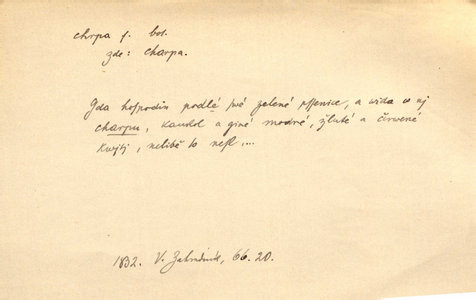 chrpa f. bot.
zde: charpa.
Gda hospodin podlé swé zelené pssenice, a wida w nj
charpu, kaukol a giné modré, žluté a čerwené
kwjtj, nelibě to nesl,...
1832. V. Zahradník, 66.20.